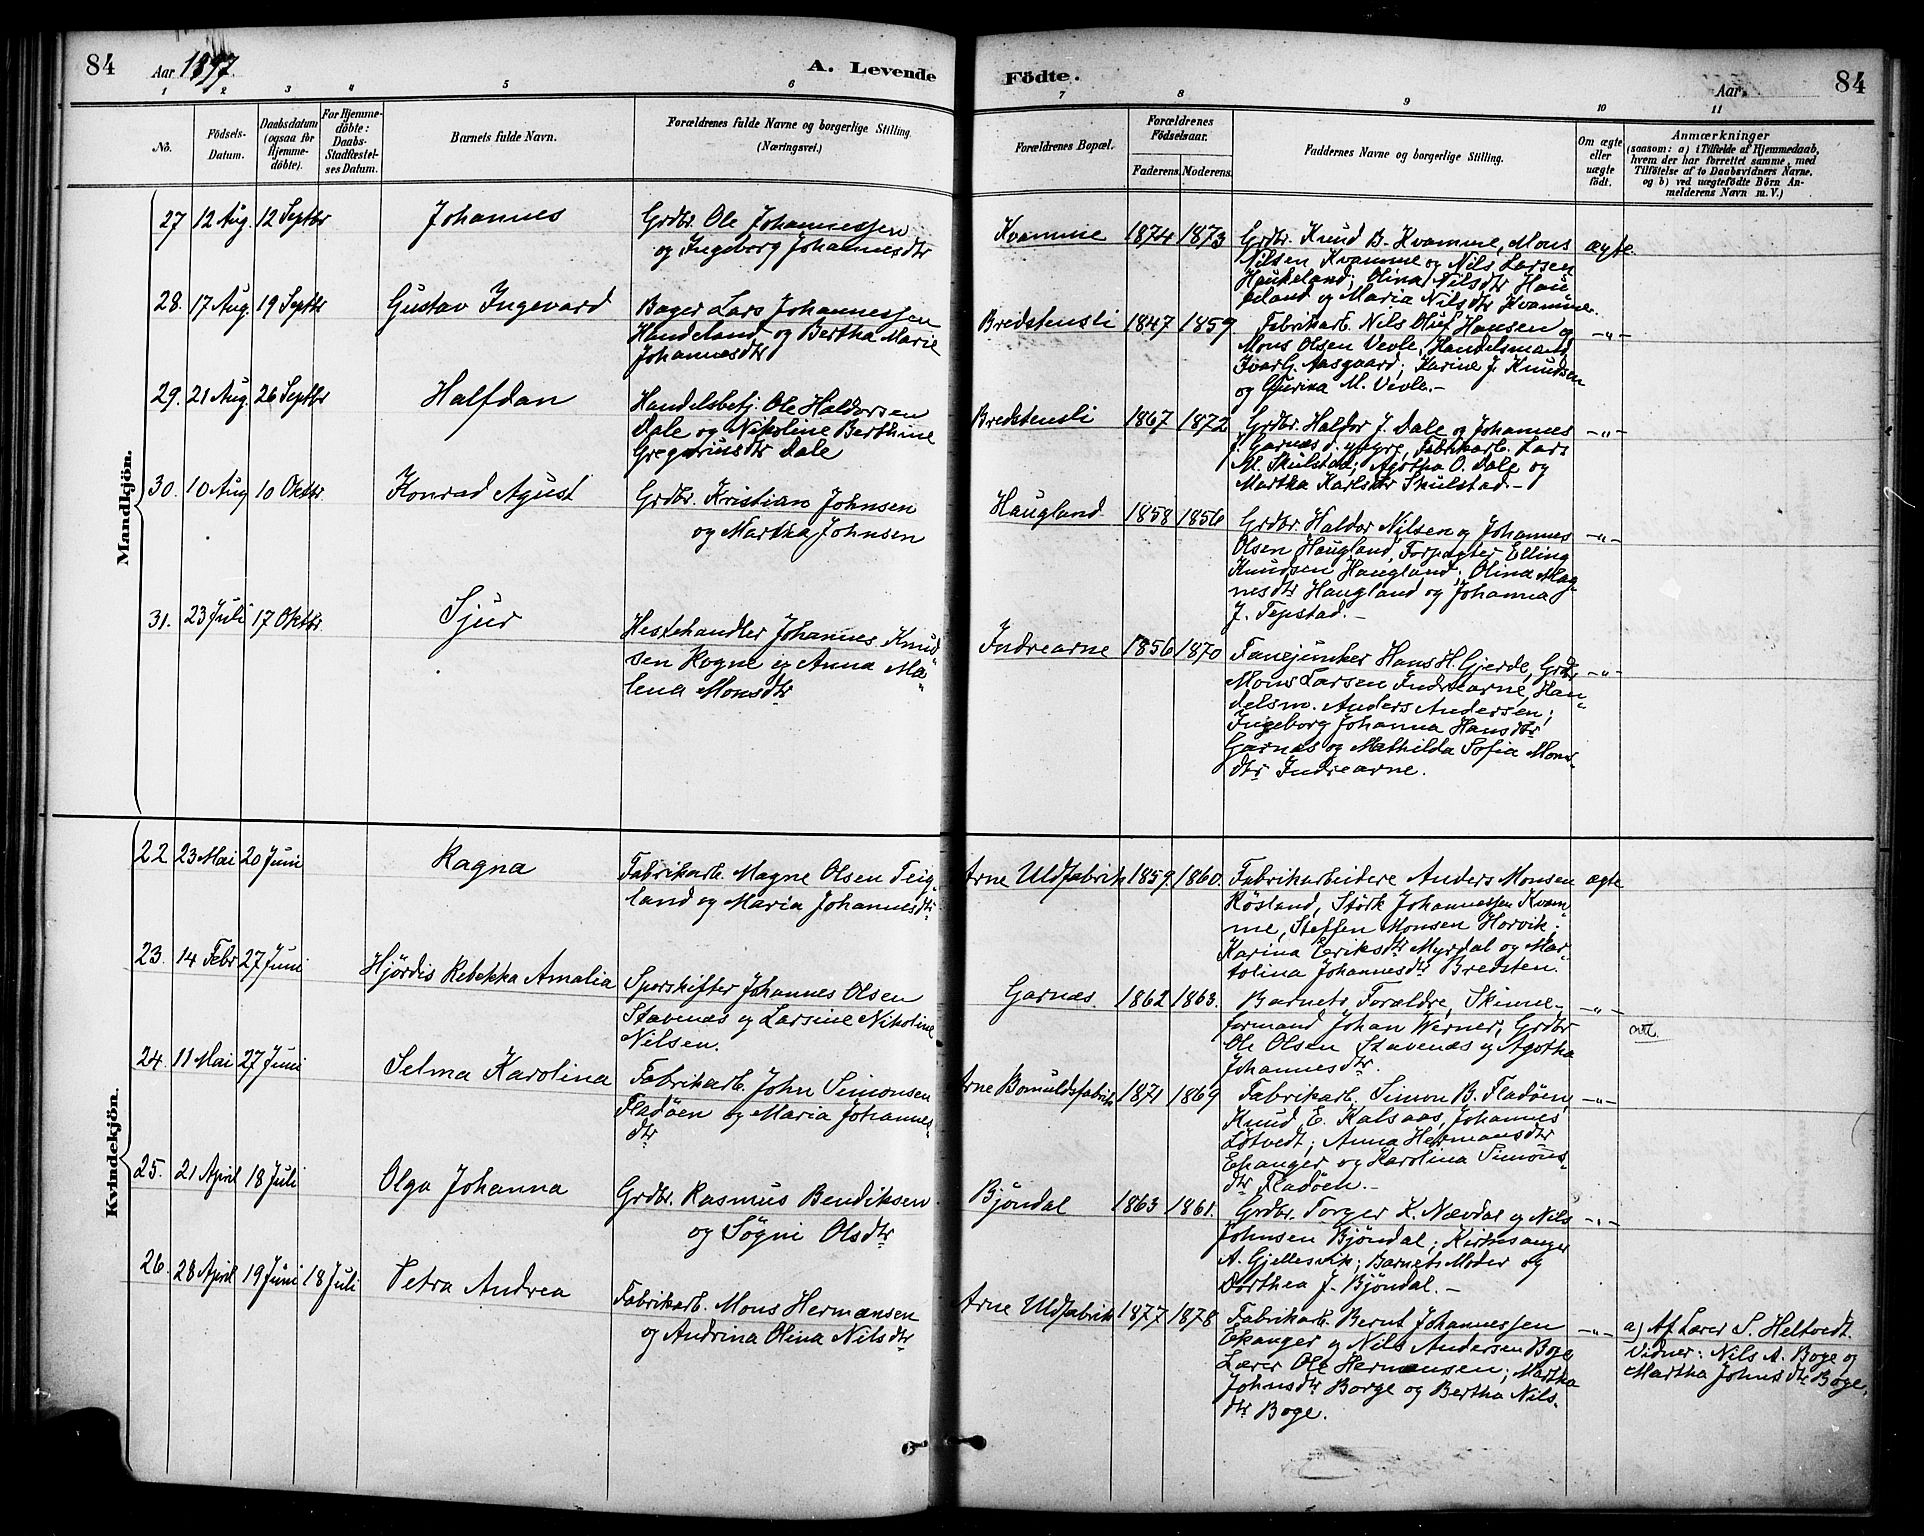 84
Aar 1897.
A. Levende
1 2 3 4 5 6
No.
Födsels-
Datum.
Daabsdatum
(ogsaa for
Hjemme-
döbte).
For Hjemme-
döbte:
Daabs-
Stadfæstel-
ses Datum.
Barnets fulde Navn.
Forældrenes fulde Navne og borgerlige Stilling.
(Næringsvei.)
Mandkjön.
27 12 Aug. 12 Septbr Johannes
Grdbr. Ole Johannessen
og Ingeborg Johannesdtr
28. 17 Aug. 19 Septbr Gustav Ingevard
Bager Lars Johannessen
Handeland og Bertha Marie
Johannesdtr
29. 21 Aug. 26 Septbr Halfdan
Handelsbetj. Ole Haldorsen
Dale og Nikoline Berthine
Gregoriusdtr Dale
30. 10 Aug 10 Oktbr. Konrad Agust
Grdbr. Kristian Johnsen
og Martha Johnsen
31. 23 Juli 17 Oktbr. Sjur
Hestehandler Johannes Knud
sen Rogne og Anna Ma„
lena Monsdtr
Kvindekjön.
22 23 Mai 20 Juni Ragna
Fabrikarb. Magne Olsen Teig„
land og Maria Johannesdtr
23. 14 Febr 27 Juni Hjördis Rebekka Amalia
Sporskifter Johannes Olsen
Stavenæs og Larsine Nikoline
Nilsen.
24. 11 Mai 27 Juni Selma Karolina
Fabrikarb. John Simonsen
Fladöen og Maria Johannes„
dtr
25. 21 April 18 Juli Olga Johanna
Grdbr. Rasmus Bendiksen
og Søgni Olsdtr
26. 28 April 19 Juni 18 Juli Petra Andrea
Fabrikarb. Mons Hermansen
og Andrina Olina Nilsdtr
Födte.
Aar
84
7 8 9 10 11
Forældrenes Bopæl.
Forældrenes
Födselsaar.
Faderens. Moderens.
Faddernes Navne og borgerlige Stilling.
Om ægte
eller
uægte
födt.
Anmærkninger
(saasom: a) i Tilfælde af Hjemmedaab,
hvem der har forrettet samme, med
Tilföielse af to Daabsvidners Navne.
og b) ved uægtefödte Börn An-
melderens Navn m. V.)
Kvamme 1874 1873 Grdbr. Knud B. Kvamme, Mons ægte.
Nilsen Kvamme og Nils Larsen
Haukeland; Olina Nilsdtr Hau
keland og Maria Nilsdtr Kvamme.
Bredstensli 1847 1859. Fabrikarb. Nils Oluf Hansen og -„-
Mons Olsen Vevle, Handelsmand
Ivar G. Aasgaard; Karine J. Knudsen
og Gurina M. Vevle.-
Bredstensli 1867 1872 Grdbr. Haldor J. Dale og Johannes -„-
J. Garnæs d. yngre, Fabrikarb. Lars
M. Skulstad; Agotha O. Dale og
Martha Karlsdtr Skulstad.-
Haugland 1858 1856 Grdbr. Haldor Nilsen og Johannes -„-
Olsen Haugland, Forpagter Elling
Knudsen Haugland; Olina Mag„
nesdtr Haugland og Johanna
J. Tepstad.-
Indrearne 1856 1870 Fanejunker Hans H. Gjerde, Grdbr -„-
Mons Larsen Indrearne, Han„
delsm. Anders Andersen;
Ingeborg Johanna Hansdtr
Garnæs og Mathilda Sofia Mons„
dtr Indrearne.
Arne Uldfabrik 1859. 1860. Fabrikarbeidere Anders Monsen ægte
Røsland, Størk Johannessen Kvam„
me, Steffen Monsen Horvik;
Karina Eriksdtr Myrdal og Mar„
tolina Johannesdtr Bredsten.
Garnæs. 1862 1863. Barnets Forældre, Skinne„ -„-
formand Johan Werner, Grdbr
Ole Olsen Stavenæs og Agotha
Johannesdtr.
Arne Bomuldsfabrik 1871 1869 Fabrikarb. Simon B. Fladöen, -„-
Knud E. Kalsaas, Johannes
Løtvedt; Anna Hermansdtr
Ekanger og Karolina Simons„
dtr Fladöen.-
Bjöndal 1863 1861. Grdbr. Torger K. Nævdal og Nils -„-
Johnsen Bjöndal; Kirkesanger
A. Gjellesvik; Barnets Moder og
Dorthea J. Bjöndal.-
Arne Uldfabrik 1877 1878 Fabrikarb. Bernt Johannessen -„-
Ekanger og Nils Andersen Boge
Lærer Ole Hermansen; Martha
Johnsdtr Borge og Bertha Nils„
dtr Boge.
a) Af Lærer S. Heltvedt.
Vidner: Nils A. Boge og
Martha Johnsdtr Boge.